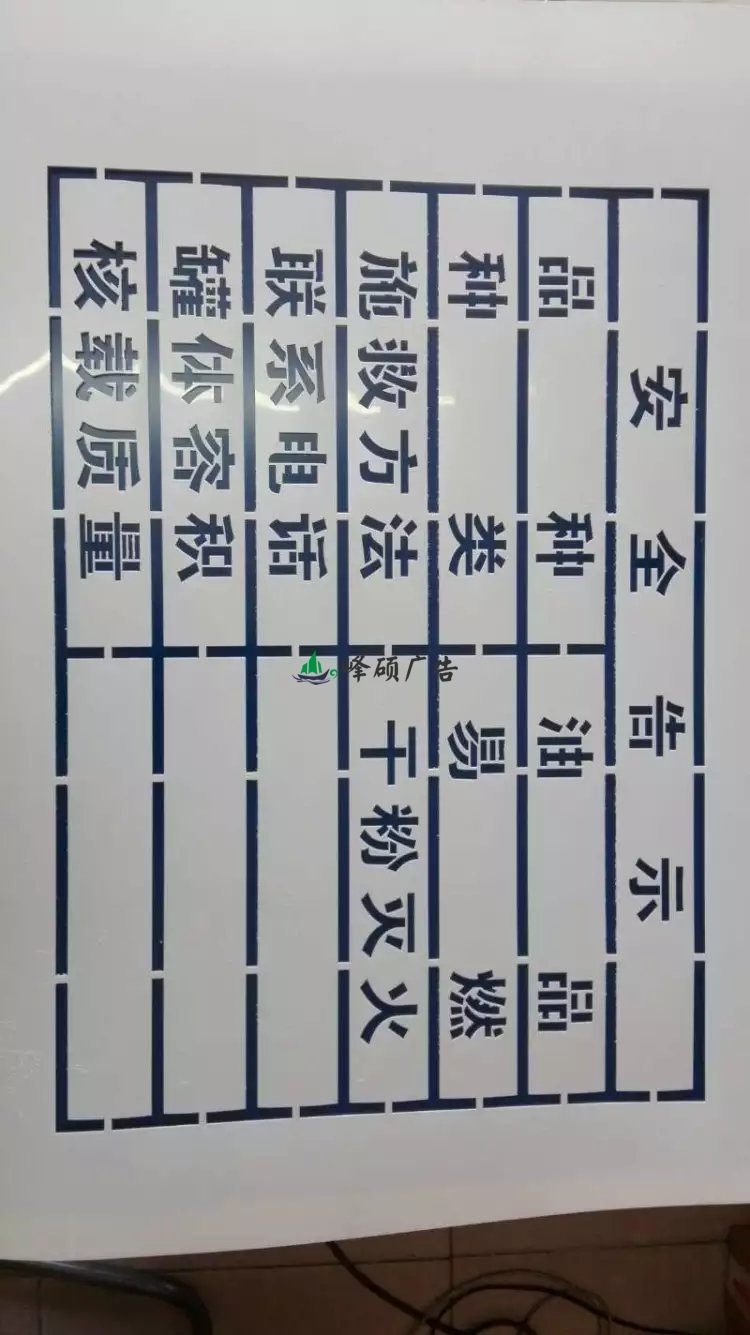 安全告示
品种 油品
种类 易燃
施救方法 干粉灭火
联系电话
罐体容积
核载质量
峰硕广告